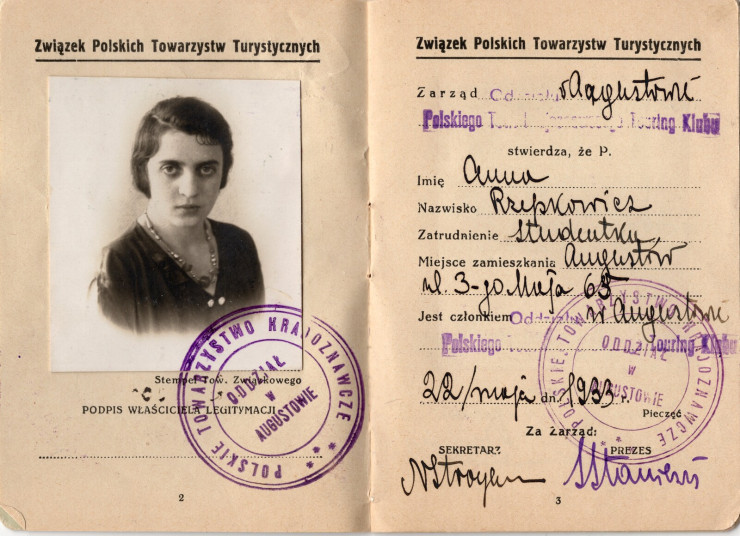 Związek Polskich Towarzystw Turystycznych
Stempel Tow. Związkowego
PODPIS WŁAŚCICIELA LEGITYMACJI
POLSKIE TOWARZYSTWO KRAJOZNAWCZE
ODDZIAŁ
W
AUGUSTOWIE
2
Związek Polskich Towarzystw Turystycznych
Zarząd Oddziału w Augustowie
Polskiego Touring Klubu
stwierdza, że P.
Imię Anna
Nazwisko Rzepkowicz
Zatrudnienie studentka
Miejsce zamieszkania Augustów
ul. 3-go Maja 65
Jest członkiem Oddziału w Augustowie
Polskiego Touring Klubu
POLSKIE TOWARZYSTWO KRAJOZNAWCZE
ODDZIAŁ
W
AUGUSTOWIE
22/maja dn. 1933 r.
Pieczęć
Za Zarząd:
SEKRETARZ PREZES
3